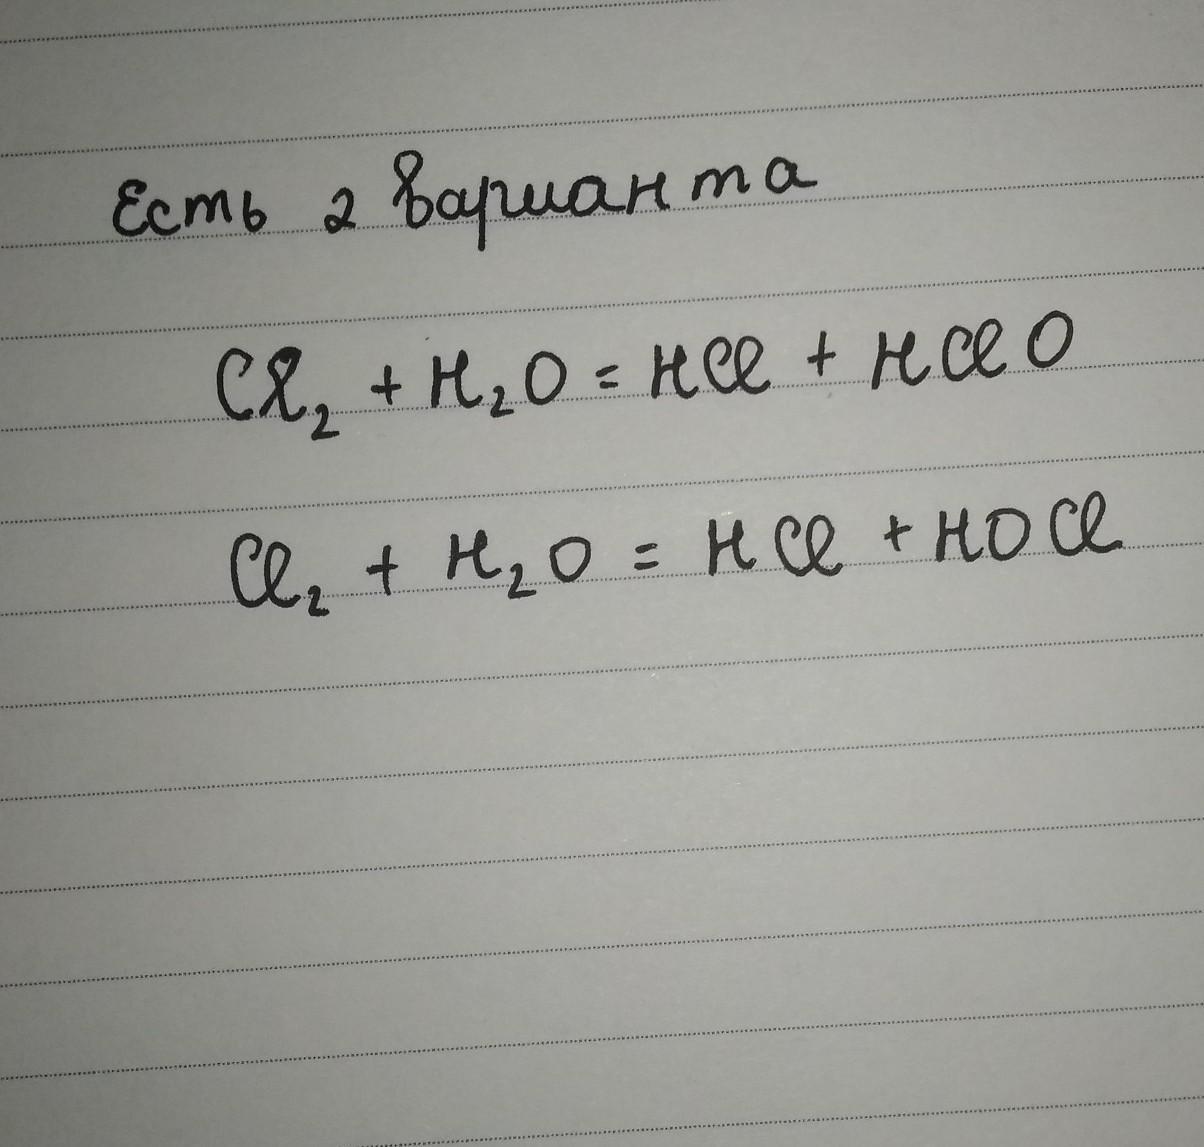 Есть 2 варианта
Cl₂ + H₂O = HCl + HClO
Cl₂ + H₂O = HCl + HOCl